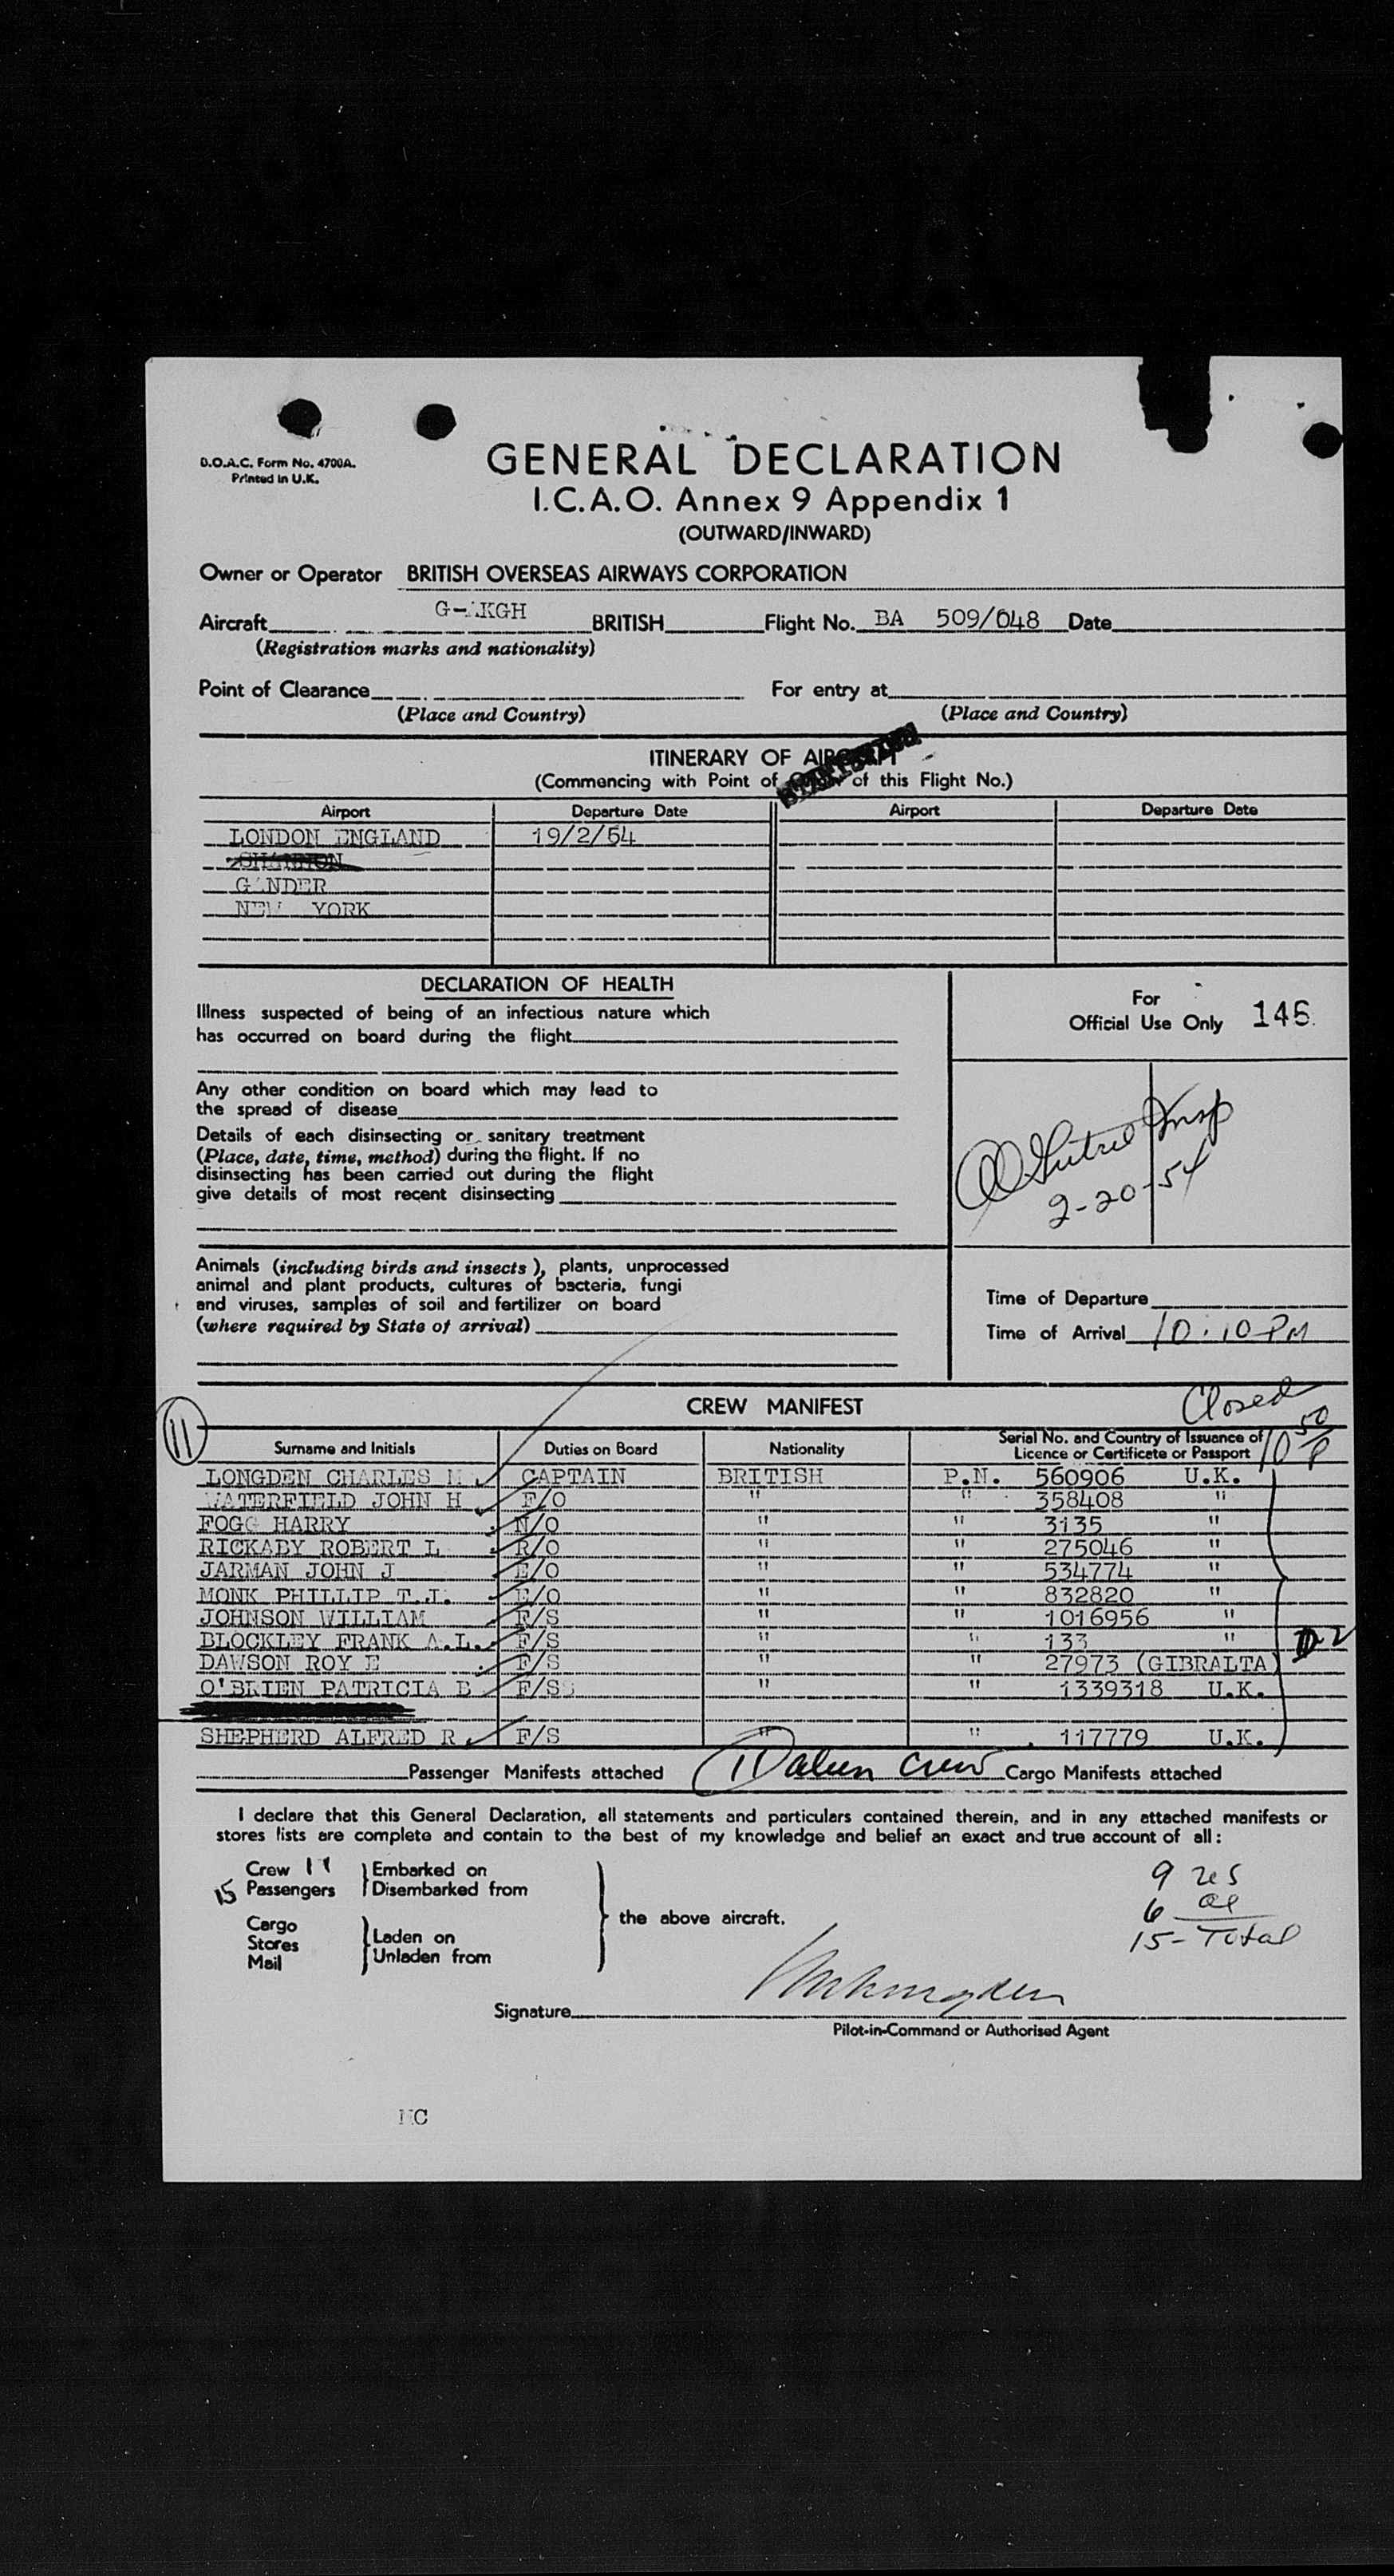 B.O.A.C. Form No. 4700A.
Printed in U.K.
GENERAL DECLARATION
I.C.A.O. Annex 9 Appendix 1
(OUTWARD/INWARD)
Owner or Operator BRITISH OVERSEAS AIRWAYS CORPORATION
Aircraft G-AKGH BRITISH Flight No. BA 509/048 Date
(Registration marks and nationality)
Point of Clearance For entry at
(Place and Country) (Place and Country)
ITINERARY OF AIRCRAFT
(Commencing with Point of of this Flight No.)
Airport Departure Date Airport Departure Date
LONDON ENGLAND 19/2/54
SHANNON
GANDER
NEW YORK
DECLARATION OF HEALTH
Illness suspected of being of an infectious nature which
has occurred on board during the flight
Any other condition on board which may lead to
the spread of disease
Details of each disinsecting or sanitary treatment
(Place, date, time, method) during the flight. If no
disinsecting has been carried out during the flight
give details of most recent disinsecting
Animals (including birds and insects), plants, unprocessed
animal and plant products, cultures of bacteria, fungi
and viruses, samples of soil and fertilizer on board
(where required by State of arrival)
For
Official Use Only 146
Insp
2-20-54
Time of Departure
Time of Arrival 10:10 PM
CREW MANIFEST Closed
11
10 50 P
Surname and Initials Duties on Board Nationality Serial No. and Country of Issuance of Licence or Certificate or Passport
LONGDEN CHARLES M CAPTAIN BRITISH P.N. 560906 U.K.
WATERFIELD JOHN H F/O " " 358408 "
FOGG HARRY N/O " " 3135 "
RICKABY ROBERT L R/O " " 275046 "
JARMAN JOHN J E/O " " 534774 "
MONK PHILLIP T.J. E/O " " 832820 "
JOHNSON WILLIAM F/S " " 1016956 "
BLOCKLEY FRANK A.L. F/S " " 133 "
D2
DAWSON ROY E F/S " " 27973 (GIBRALTA)
O'BRIEN PATRICIA B F/SS " " 1339318 U.K.
SHEPHERD ALFRED R F/S " " 117779 U.K.
Passenger Manifests attached 11 alien crew Cargo Manifests attached
I declare that this General Declaration, all statements and particulars contained therein, and in any attached manifests or
stores lists are complete and contain to the best of my knowledge and belief an exact and true account of all:
Crew 11 Embarked on
15 Passengers Disembarked from
the above aircraft.
Cargo
Stores
Mail
Laden on
Unladen from
9 res
6 al
15 - Total
Signature
Pilot-in-Command or Authorised Agent